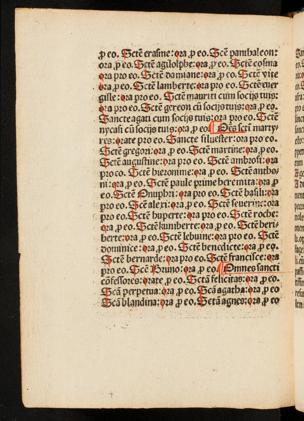 ꝓ eo. Sctē erasme: ora, ꝓ eo. Scē panthaleon:
ora, ꝓ eo. Sctē agilolphe: ora, ꝓ eo. Sctē cosma
ora pro eo. Sctē damiane: ora, ꝓ eo. Sctē vite
ora, ꝓ eo. Sctē lamberte: ora pro eo. Sctē euer
gisle: ora pro eo. Sctē mauriti cum socijs tuis:
ora pro eo. Sctē gereon cū socijs tuis: ora, ꝓ eo.
Sancte agati cum socijs tuis: ora pro eo. Sctē
nycasi cū socijs tuis: ora, ꝓ eo. Oēs scti marty
res: orate pro eo. Sancte siluester: ora pro eo.
Sctē gregori: ora, ꝓ eo. Sctē martine: ora, ꝓ eo.
Sctē augustine: ora pro eo. Sctē ambrosi: ora
pro eo. Sctē hieronime: ora, ꝓ eo. Sctē antho
ni: ora, ꝓ eo. Sctē paule prime heremita: ora, ꝓ
eo. Sctē Onuphri: ora, ꝓ eo. Sctē basili: ora
pro eo. Sctē alexi: ora, ꝓ eo. Sctē seuerine: ora
pro eo. Sctē huperte: ora, ꝓ eo. Sctē roche:
ora, ꝓ eo. Sctē kuniberte: ora, ꝓ eo. Sctē heri
berte: ora, ꝓ eo. Sctē lebuine: ora, ꝓ eo. Sctē
dominice: ora, ꝓ eo. Sctē benedicte: ora, ꝓ eo.
Sctē bernarde: ora pro eo. Sctē francisce: ora
pro eo. Sctē Bruno: ora, ꝓ eo. Omnes sancti
cōfessores: orate, ꝓ eo. Sctā felicitas: ora, ꝓ eo.
Scā perpetua: ora, ꝓ eo. Scā agatha: ora, ꝓ eo.
Scā blandina: ora, ꝓ eo. Sctā agnes: ora, ꝓ eo